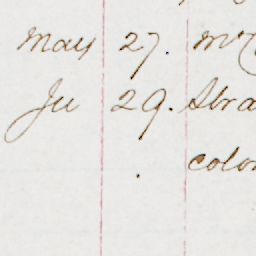 May 27. Mr C
Ju 29. Abra
colo